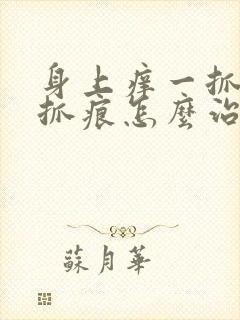 身上痒一抓
抓痕怎麼治
蘇月華